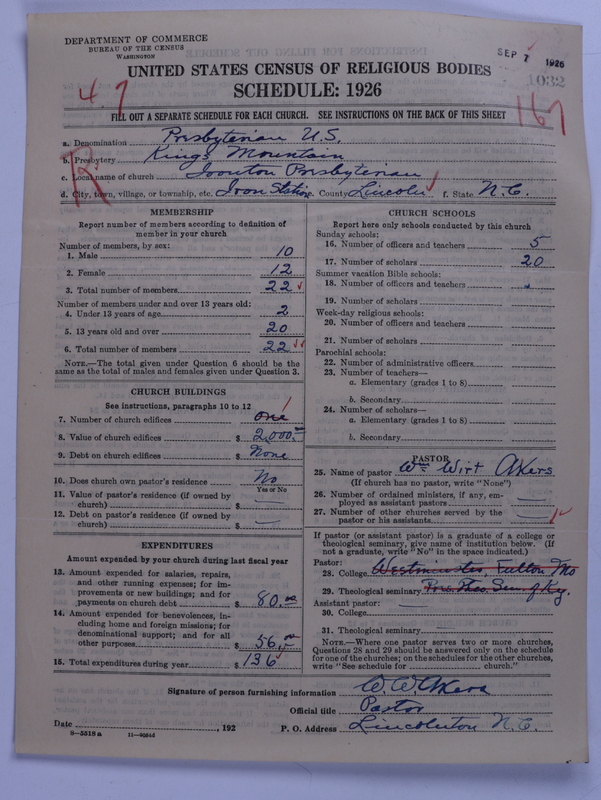 DEPARTMENT OF COMMERCE
BUREAU OF THE CENSUS
WASHINGTON
SEP 7 1926
1032
UNITED STATES CENSUS OF RELIGIOUS BODIES
SCHEDULE: 1926
4.7
167
FILL OUT A SEPARATE SCHEDULE FOR EACH CHURCH. SEE INSTRUCTIONS ON THE BACK OF THIS SHEET
R
a. Denomination Presbyterian U.S.
b. Presbytery Kings Mountain
c. Local name of church Ironton Presbyterian
d. City, town, village, or township, etc. Iron Station e. County Lincoln f. State N.C.
MEMBERSHIP
Report number of members according to definition of
member in your church
Number of members, by sex:
1. Male 10
2. Female 12
3. Total number of members 22
Number of members under and over 13 years old:
4. Under 13 years of age 2
5. 13 years old and over 20
6. Total number of members 22
NOTE.—The total given under Question 6 should be the
same as the total of males and females given under Question 3.
CHURCH BUILDINGS
See instructions, paragraphs 10 to 12
7. Number of church edifices one
8. Value of church edifices $ 2,000.00
9. Debt on church edifices $ None
10. Does church own pastor's residence? No
Yes or No
11. Value of pastor's residence (if owned by
church) $
12. Debt on pastor's residence (if owned by
church) $ —
EXPENDITURES
Amount expended by your church during last fiscal year
13. Amount expended for salaries, repairs,
and other running expenses; for im-
provements or new buildings; and for
payments on church debt $ 80.00
14. Amount expended for benevolences, in-
cluding home and foreign missions; for
denominational support; and for all
other purposes $ 56.00
15. Total expenditures during year $ 136
CHURCH SCHOOLS
Report here only schools conducted by this church
Sunday schools:
16. Number of officers and teachers 5
17. Number of scholars 20
Summer vacation Bible schools:
18. Number of officers and teachers
19. Number of scholars
Week-day religious schools:
20. Number of officers and teachers
21. Number of scholars
Parochial schools:
22. Number of administrative officers
23. Number of teachers—
a. Elementary (grades 1 to 8)
b. Secondary
24. Number of scholars—
a. Elementary (grades 1 to 8)
b. Secondary
PASTOR
25. Name of pastor Wm Wirt Akers
(If church has no pastor, write "None")
26. Number of ordained ministers, if any, em-
ployed as assistant pastors —
27. Number of other churches served by the
pastor or his assistants —
If pastor (or assistant pastor) is a graduate of a college or
theological seminary, give name of institution below. (If
not a graduate, write "No" in the space indicated.)
Pastor:
28. College Westminster, Fulton Mo
29. Theological seminary Pres. Theo. Sem. of Ky.
Assistant pastor: —
30. College
31. Theological seminary —
NOTE.—Where one pastor serves two or more churches,
Questions 28 and 29 should be answered only on the schedule
for one of the churches; on the schedules for the other churches,
write "See schedule for church."
Signature of person furnishing information W. W. Akers
Official title Pastor
Date , 192 P. O. Address Lincolnton N.C.
8—5318a 11—9054d